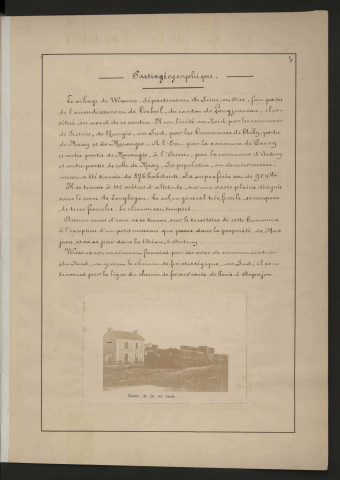 3
Partie géographique.
Le village de Wissous, département de Seine-et-Oise, fait partie
de l'arrondissement de Corbeil, du canton de Longjumeau; il est
situé au nord de ce canton. Il est limité au Nord par les communes
de Fresnes, de Rungis, au Sud, par les Communes de Chilly, partie
de Massy et de Morangis. A l'Est, par la commune de Paray
et autre partie de Morangis, à l'Ouest, par la commune d'Antony
et autre partie de celle de Massy. La population au dernier recen-
sement était de 896 habitants. La superficie est de 914 Ha
Il se trouve à mètres d'altitude, sur une vaste plaine désignée
sous le nom de Longboyau. Le sol en général très fertile, se compose
de terre franche. Le climat est tempéré.
Aucun cours d'eau ne se trouve sur le territoire de cette Commune
à l'exception d'un petit ruisseau qui passe dans la propriété de Mont
jean, et va se jeter dans la Bièvre, à Antony.
Wissous est maintenant favorisé par des voies de communication
Au Nord, on y voit le chemin de fer stratégique, au Sud, il est
traversé par la ligne du chemin de fer sur route de Paris à Arpajon.